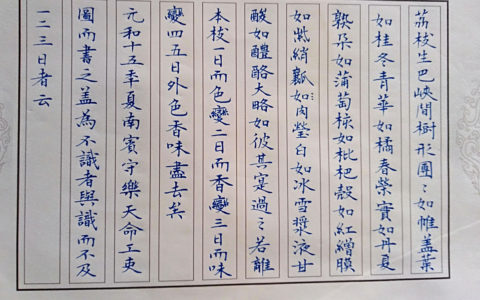 荔枝生巴峽間樹形團〻如帷蓋葉
如桂冬青華如橘春榮實如丹夏
熟朵如蒲萄核如枇杷殼如紅繒膜
如紫綃瓤如肉瑩白如冰雪漿液甘
酸如醴酪大略如彼其寔過〻若離
本枝一日而色變二日而香變三日而味
變四五日外色香味盡去矣
元和十五年夏南賓守樂天命工吏
圖而書之蓋為不識者與識而不及
一二三日者云